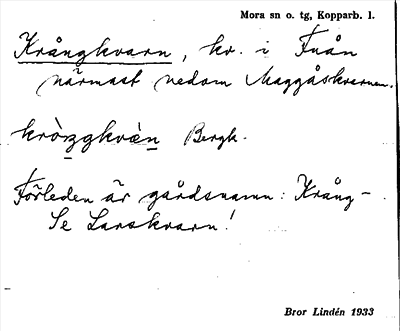 Mora sn o. tg, Kopparb. l.
Krångkvarn, kv. i Fuån
närmast nedom Maggåskvarnen.
kròŋgkvàn Bergk.
Förleden är gårdsnamn: Krång-
Se Larskvarn!
Bror Lindén 1933